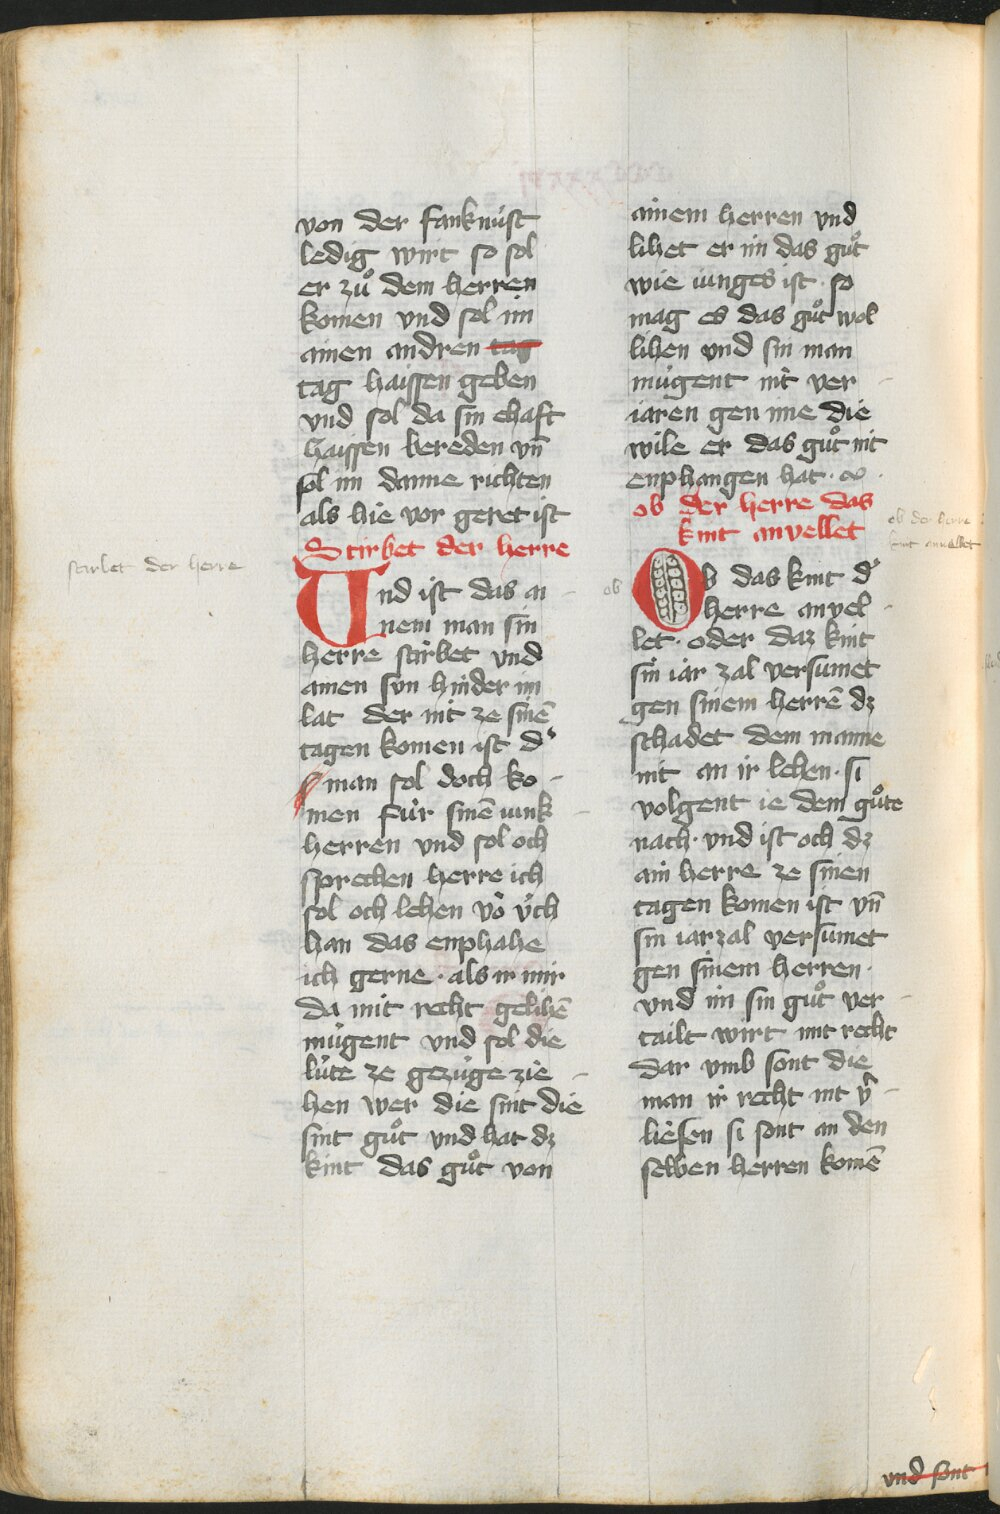 von der fanknúst
ledig wirt so sol
er zuͦ dem herren
komen vnd sol im
ainen andren tag
tag haissen geben
vnd sol da sin ehaft
haissen bereden vn̄
sol im danne richten
als hie vor geret ist
Stirbet der herre
Vnd ist das ai
nem man sin
herre stirbet vnd
ainen svn hinder im
lat der nit ze sinē
tagen komen ist d'
man sol doch ko
men fúr sinē iunk
herren vnd sol och
sprechen herre ich
sol och lehen võ v́ch
han das enphahe
ich gerne · als ir mir
da mit recht gelihē
múgent vnd sol die
lúte ze gezúge zie
hen wer die sint die
sint guͦt vnd hat dz
kint das guͦt von
ainem herren vnd
lihet er im das guͦt
wie iunges ist · so
mag es das guͦt wol
lihen vnd sin man
múgent nit ver
iaren gen ime die
wile er das guͦt nit
enphangen hat ·
ob der herre das
kint anvellet
Ob das kint d'
herre anvel
let · oder daz kint
sin iar zal versumet
gen sinem herrē dz
schadet dem manne
nit an ir lehen · si
volgent ie dem guͦte
nach · vnd ist och dz
ain herre ze sinen
tagen komen ist vn̄
sin iarzal versumet
gen sinem herren ·
vnd im sin guͦt ver
tailt wirt mit recht
dar vmb sont die
man ir recht nit v̂
liesen si sont an den
selben herren komē
stirbet der herre
ob
ob der herre
kint anvellet
vnd sont